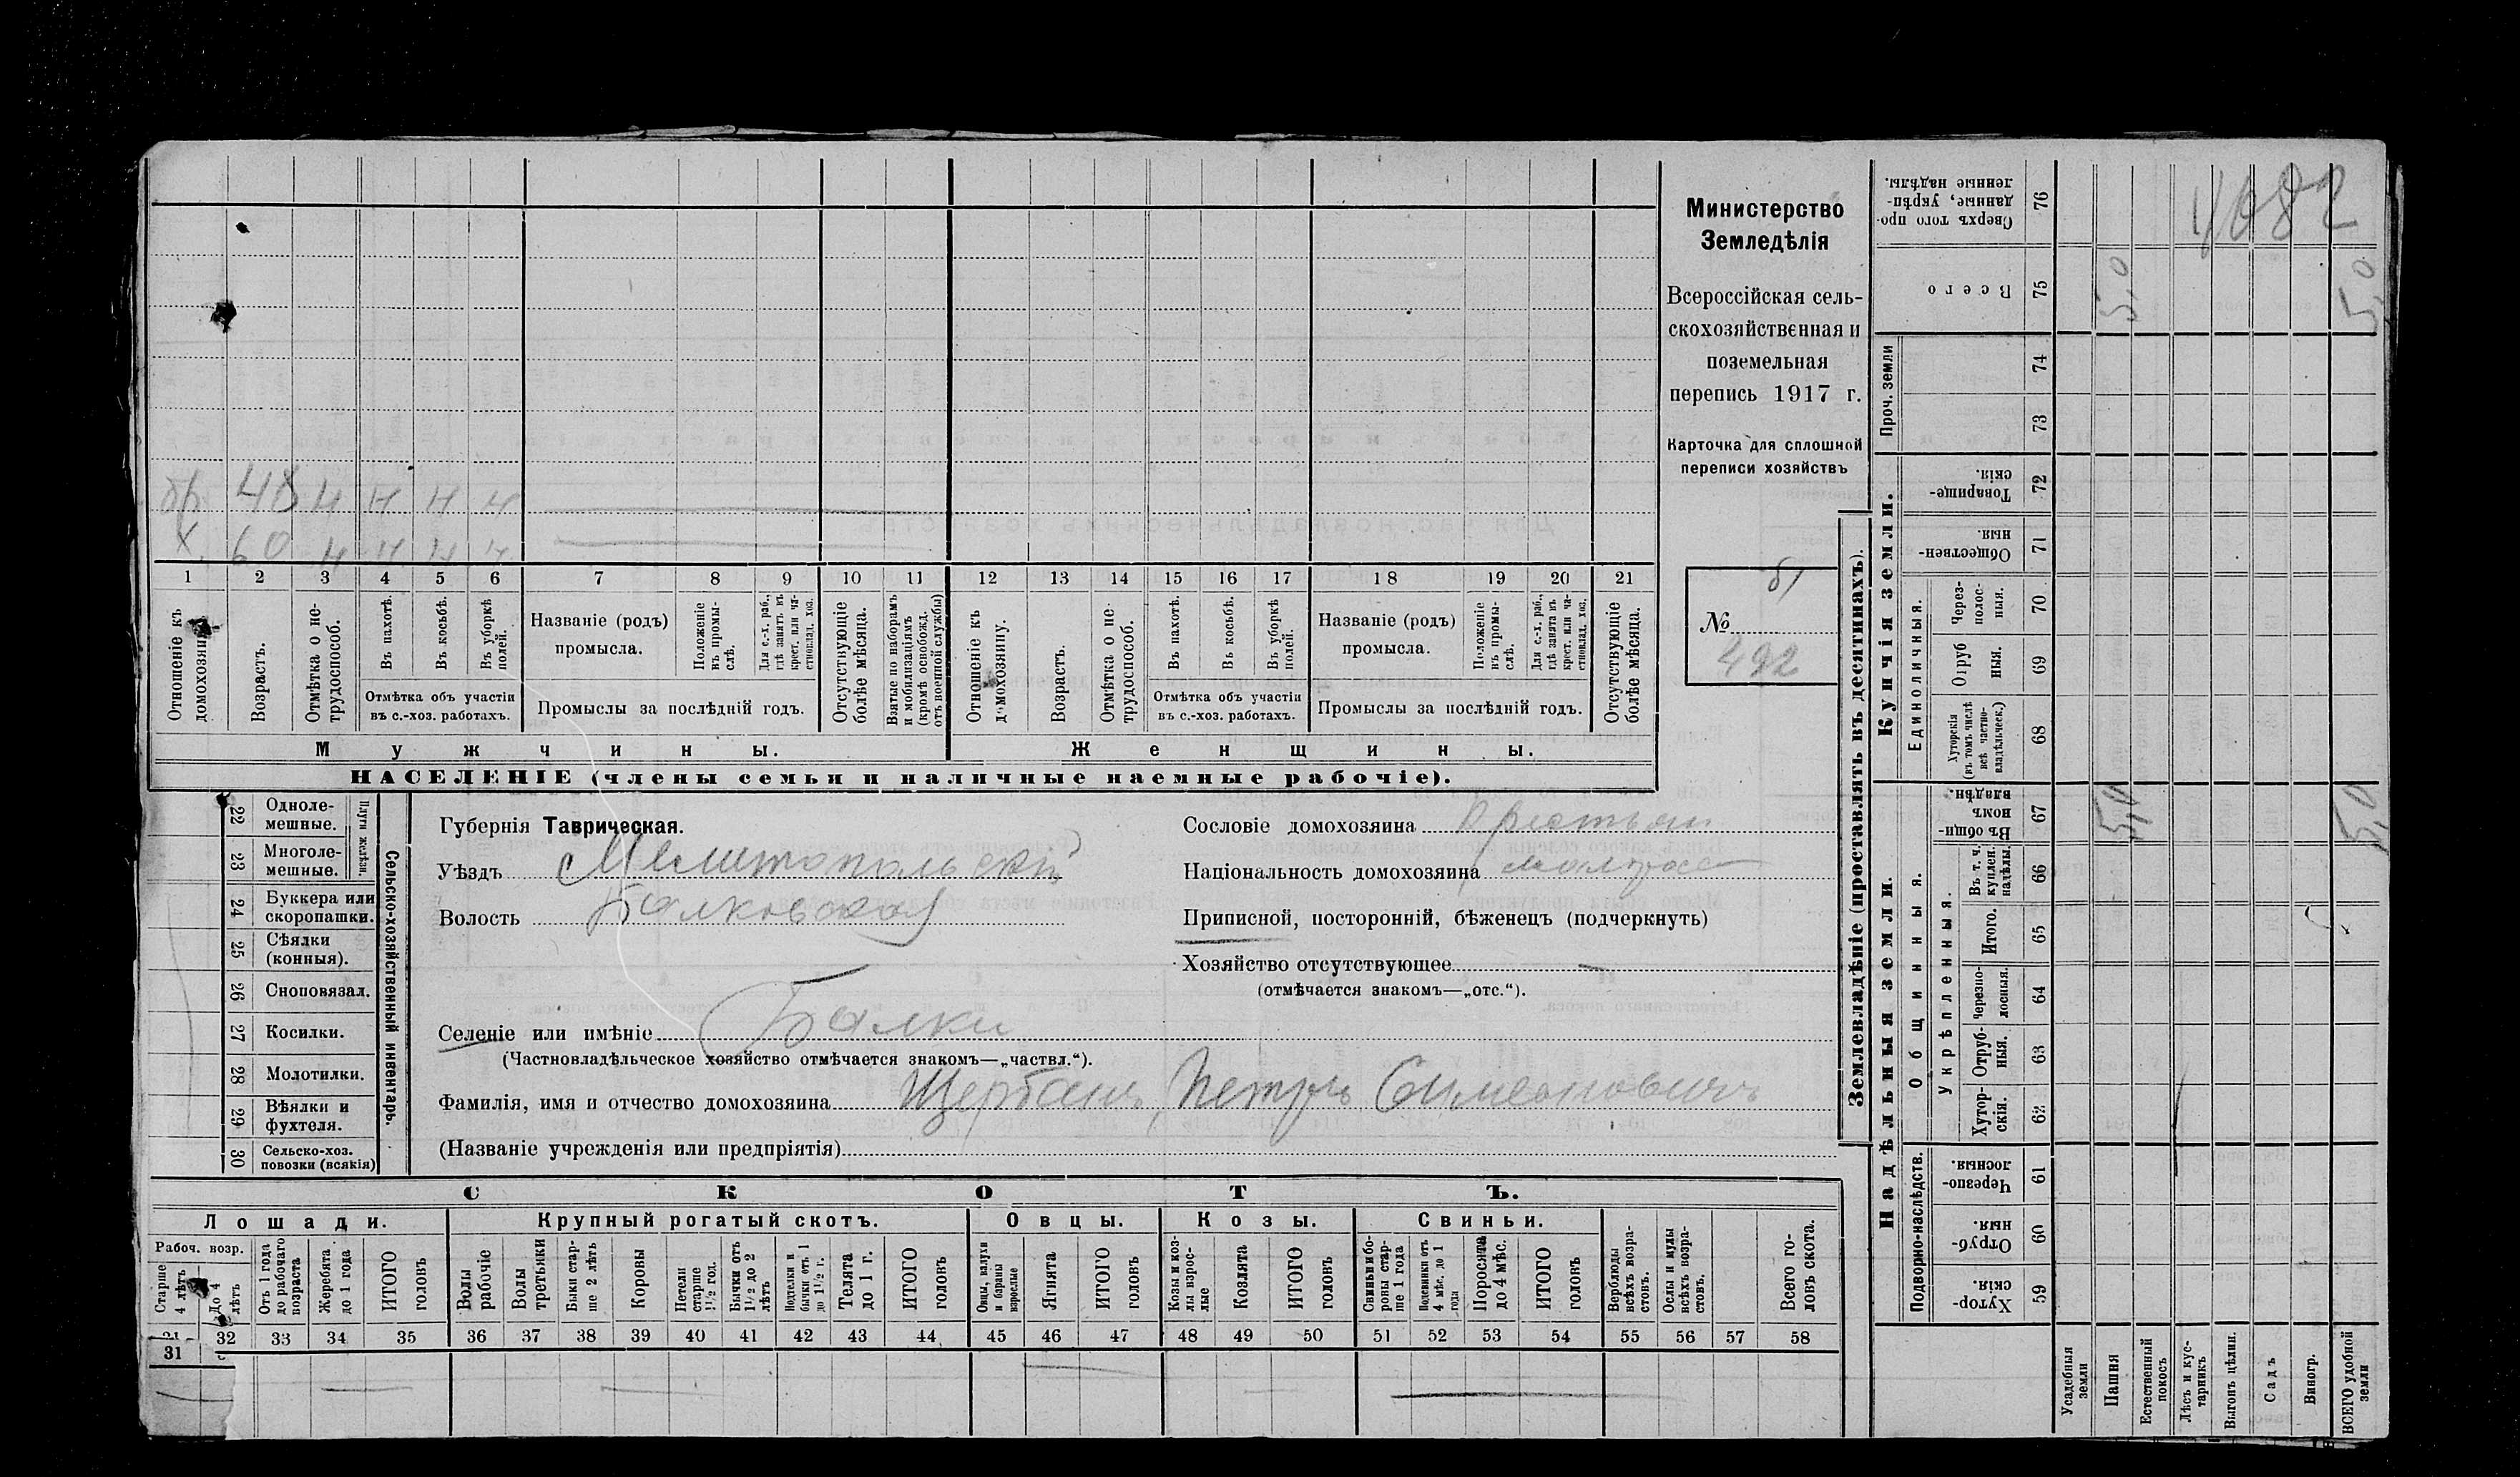 Министерство
Земледѣлія
Всероссійская сель-
скохозяйственная и
поземельная
перепись 1917 г.
Карточка для сплошной
переписи хозяйствъ
№ 492
бр 48 н н н н
х. 60 н н н н
1 2 3 4 5 6 7 8 9 10 11 12 13 14 15 16 17 18 19 20 21
Отношеніе къ домохозяину.
Возрастъ.
Отмѣтка о не-трудоспособ.
Въ пахотѣ.
Въ косьбѣ.
Въ уборкѣ полей.
Отмѣтка объ участіи
въ с.-хоз. работахъ.
Названіе (родъ)
промысла.
Положеніе въ промы-слѣ.
Для с.-х. раб., гдѣ занятъ въ крест. или ча-стновлад. хоз.
Промыслы за послѣдній годъ.
Отсутствующіе болѣе мѣсяца.
Взятые по наборамъ и мобилизаціямъ (кромѣ освобожд. отъ военной службы)
Отношеніе къ домохозяину.
Возрастъ.
Отмѣтка о не-трудоспособ.
Въ пахотѣ.
Въ косьбѣ.
Въ уборкѣ полей.
Отмѣтка объ участіи
въ с.-хоз. работахъ.
Названіе (родъ)
промысла.
Положеніе въ промы-слѣ.
Для с.-х. раб., гдѣ занята въ крест. или ча-стновлад. хоз.
Промыслы за послѣдній годъ.
Отсутствующіе болѣе мѣсяца.
Мужчины.
Женщины.
НАСЕЛЕНІЕ (члены семьи и наличные наемные рабочіе).
22 Одноле-мешные.
23 Многоле-мешные.
Плуги желѣзн.
24 Буккера или скоропашки.
25 Сѣялки (конныя).
26 Сноповязал.
27 Косилки.
28 Молотилки.
29 Вѣялки и фухтеля.
30 Сельско-хоз. повозки (всякія)
Сельско-хозяйственный инвентарь.
Губернія Таврическая.
Уѣздъ Мелитопольскій
Волость Балковская
Селеніе или имѣніе Балки
(Частновладѣльческое хозяйство отмѣчается знакомъ—„частвл.“).
Фамилія, имя и отчество домохозяина Щербань, Петръ Симеоновичъ
(Названіе учрежденія или предпріятія)
Сословіе домохозяина Крестьян
Національность домохозяина малорос
Приписной, посторонній, бѣженецъ (подчеркнуть)
Хозяйство отсутствующее —
(отмѣчается знакомъ—„отс.“).
СКОТЪ.
Лошади.
Крупный рогатый скотъ.
Овцы.
Козы.
Свиньи.
Рабоч. возр.
Старше 4 лѣтъ
До 4 лѣтъ
Отъ 1 года до рабочаго возраста
Жеребята до 1 года
ИТОГО головъ
Волы рабочіе
Волы третьяки
Быки стар-ше 2 лѣтъ
Коровы
Нетели старше 1½ год.
Бычки отъ 1½ до 2 лѣтъ
Подтелки и бычки отъ 1 до 1½ г.
Телята до 1 г.
ИТОГО головъ
Овцы, валухи и бараны взрослые
Ягнята
ИТОГО головъ
Козы и коз-лы взрос-лые
Козлята
ИТОГО головъ
Свиньи и бо-ровы стар-ше 1 года
Подсвинки отъ 4 мѣс. до 1 года
Поросята до 4 мѣс.
ИТОГО головъ
Верблюды всѣхъ возра-стовъ.
Ослы и мулы всѣхъ возра-стовъ.
Всего го-ловъ скота.
31 32 33 34 35 36 37 38 39 40 41 42 43 44 45 46 47 48 49 50 51 52 53 54 55 56 57 58
31
Землевладѣніе (проставлять въ десятинахъ).
Купчія земли.
Надѣльныя земли.
76 Сверхъ того про-данные, укрѣп-ленные надѣлы.
75 Всего 5,0 5,0
Проч. земли
74
73
72 Товарище-скія.
71 Обществен-ныя.
Единоличныя.
70 Через-полос-ныя.
69 Отруб ныя.
68 Хуторскія (въ томъ числѣ всѣ частно-владѣльческ.)
67 Въ общин-номъ владѣн. 5,0 5,0
Общинныя.
Укрѣпленныя.
66 Въ т. ч. куплен. надѣлы.
65 Итого.
64 черезпо-лосныя.
63 Отруб-ныя.
62 Хутор-скія.
Подворно-наслѣдств.
61 Черезпо-лосныя.
60 Отруб-ныя.
59 Хутор-скія.
Усадебныя земли
Пашня
Естественный покосъ
Лѣсъ и кус-тарникъ
Выгонъ цѣлин.
Садъ
Виногр.
ВСЕГО удобной земли